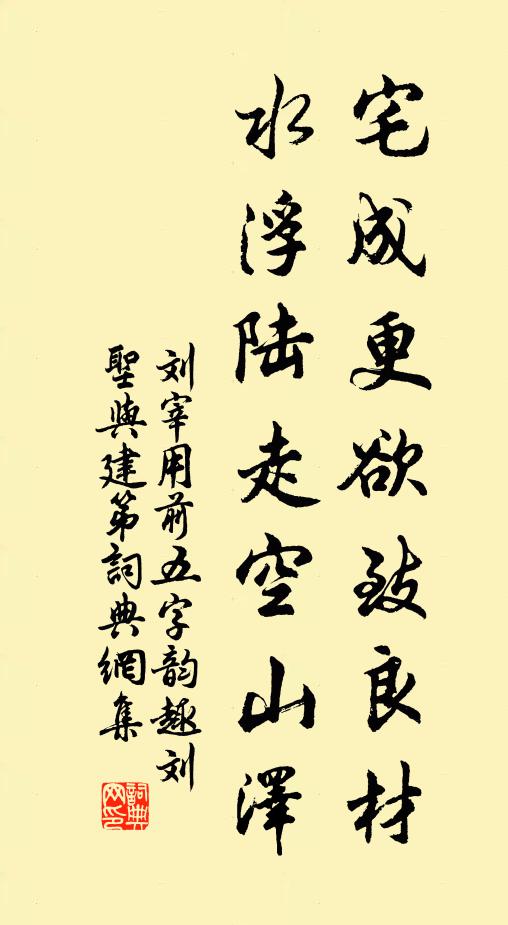 宅成更欲致良材
水浮陆走空山澤
刘宰用前五字韵趣刘
聖與建第詞典網集
詞典网印